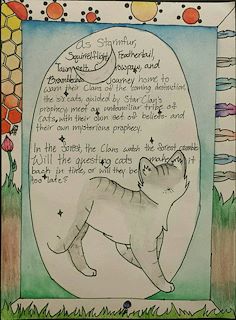 As Stormfur,
Squirrelflight, Feathertail,
Tawnypelt, Crowpaw, and
Brambleclaw journey home to
warn their Clans of the coming destruction,
the six cats, guided by StarClan's
prophecy meet an unfamiliar tribe of
cats, with their own set of beliefs and
their own mysterious prophecy.
In the forest, the Clans watch the forest crumble
Will the questing cats make it
back in time, or will they be
too late?